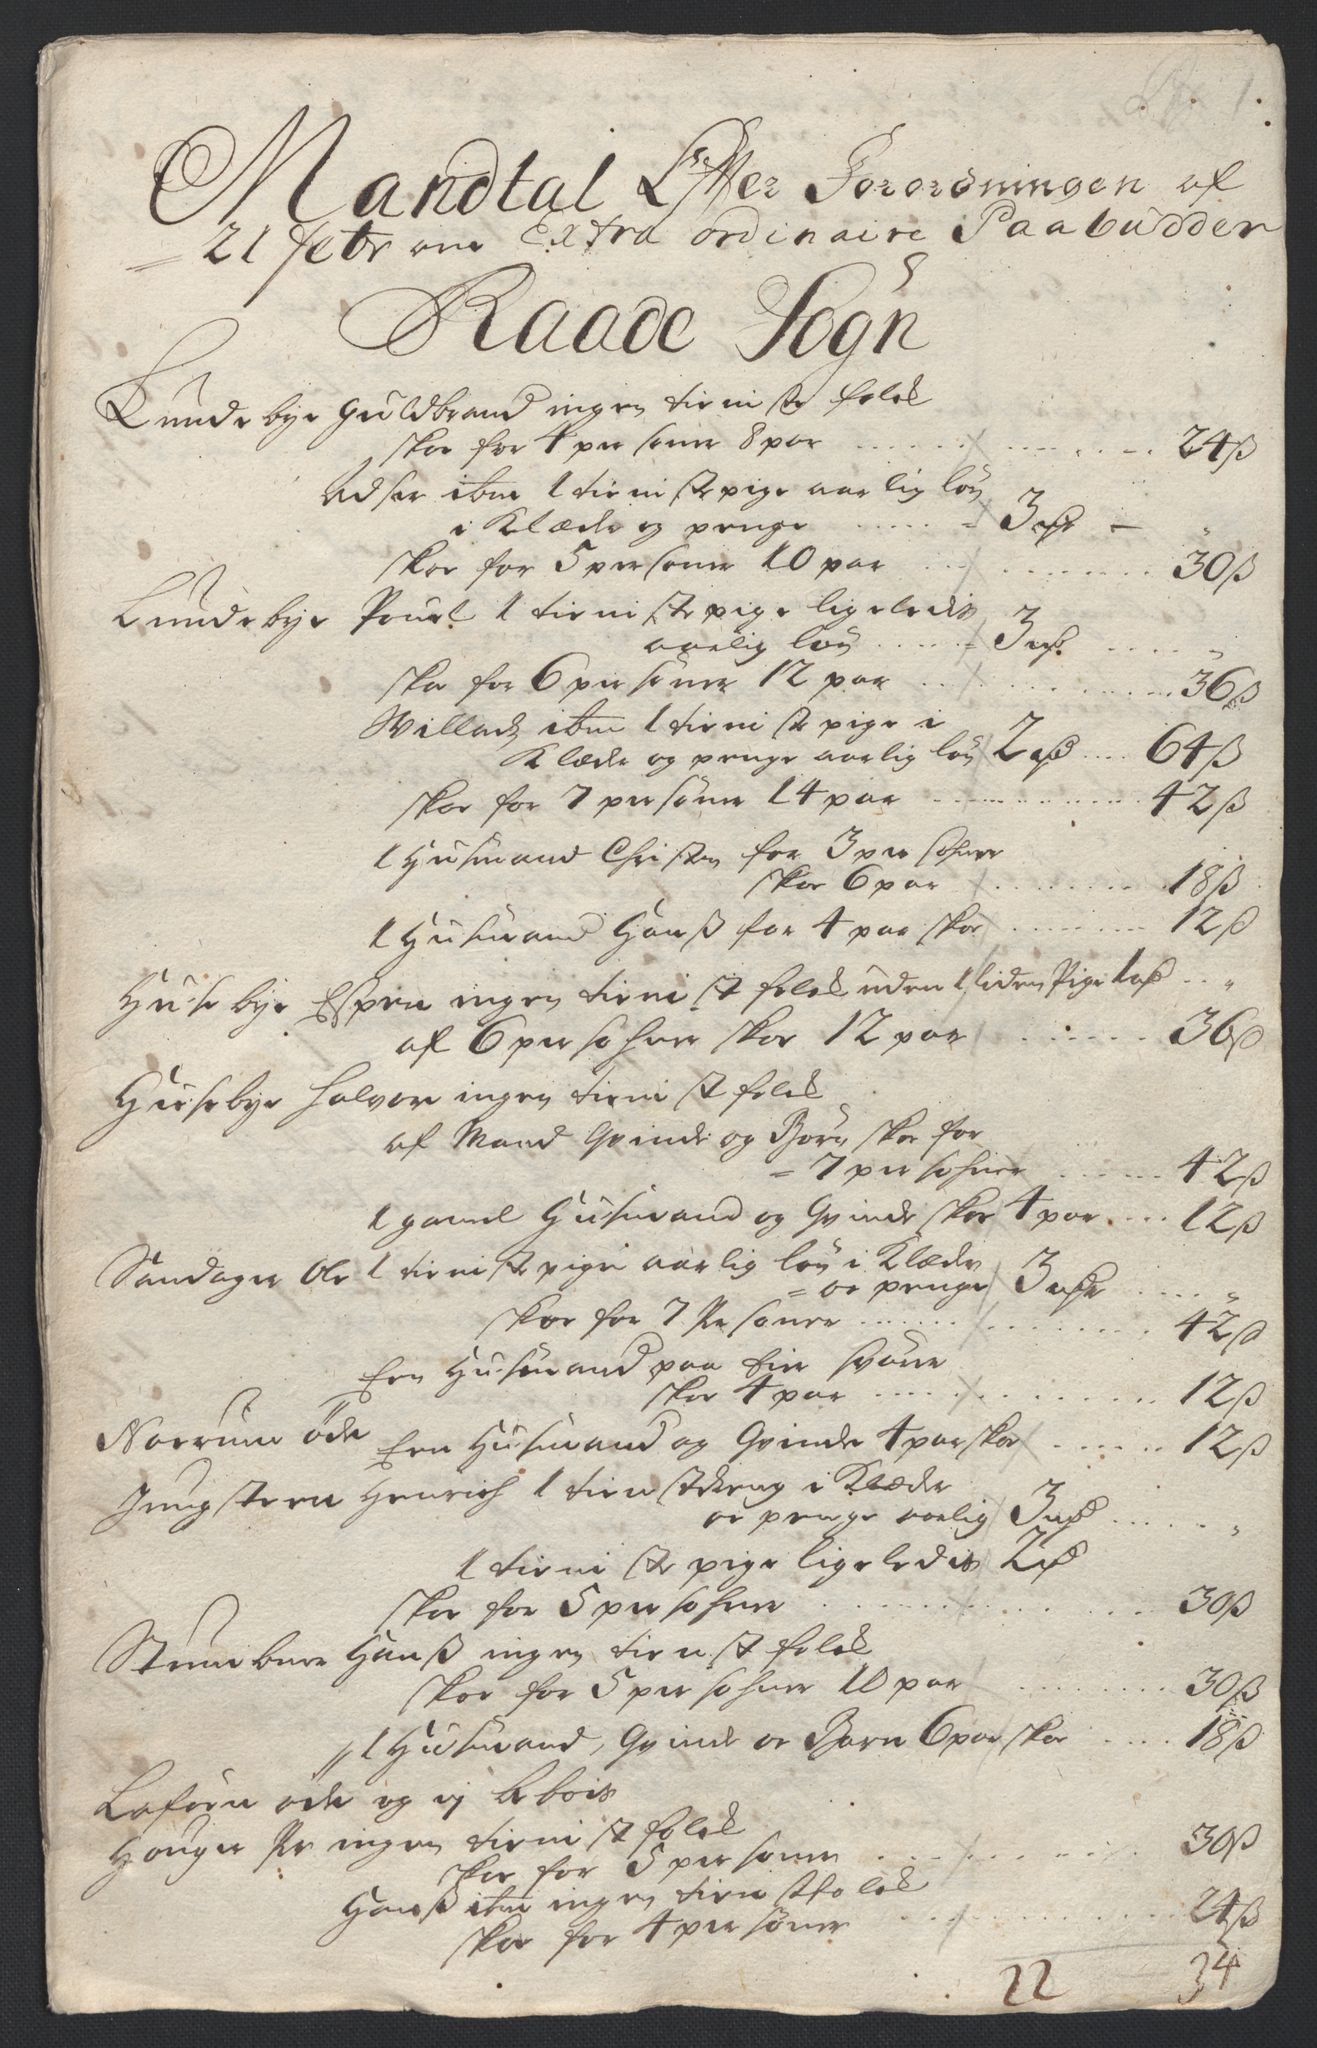 Mandtal Effter Forordningen af
= 21 febr om Extra ordinaire Paabudder
Raade Sogn
Lundebye Guldbrand ingen tieniste folck
skoe for 4 persaner 8 par 24 ß
Adser ibm 1 tieniste pige aarlig løn
i Klæde og penge 3 rdr — "
skoe for 5 persaner 10 par 30 ß
Lundebye Pouel 1 tieniste pige ligeledis
aarlig løn 3 rd. "
skoe for 6 persaner 12 par 36 ß
Willach ibm 1 tieniste pige i
Klæde og penge aarlig løn 2 rd 64 ß
skoe for 7 persaner 14 par 42 ß
1 Husmand Christen for 3 persohner
skoe 6 par 18 ß
1 Husmand Hanß for 4 par skoe 12 ß
Husebye Espen ingen tienist folck uden 1 liden Pige 1 rd "
af 6 persohner skoe 12 par 36 ß
Husebye Halvor ingen tienist folck
af Mand Qvinde og Børn skoe for
= 7 persohner 42 ß
1 gamel Husmand og Qvinde skoe 4 par 12 ß
Sandager Ole 1 tieniste pige aarlig løn i Klæde
= oc penge 3 rdr "
skoe for 7 Persaner 42 ß
Een Husmand paa
skoe 4 par 12 ß
Norrum øde Een Husmand og Qvinde 4 par skoe 12 ß
Henrich 1 tienistdreng i Klæde
oc penge aarlig 3 rd "
1 tieniste pige ligeledis 2 rd
skoe for 5 persohner 30 ß
Hanß ingen tienist folck
skoe for 5 persohner 10 par 30 ß
1 Husmand, Qvinde oc Barn 6 par skoe 18 ß
øde og ej
Houger Pr ingen tienist folck
skoe for 5 persaner 30 ß
Hanß ibm ingen tienistfolck
skoe for 4 persaner 24 ß
22 34